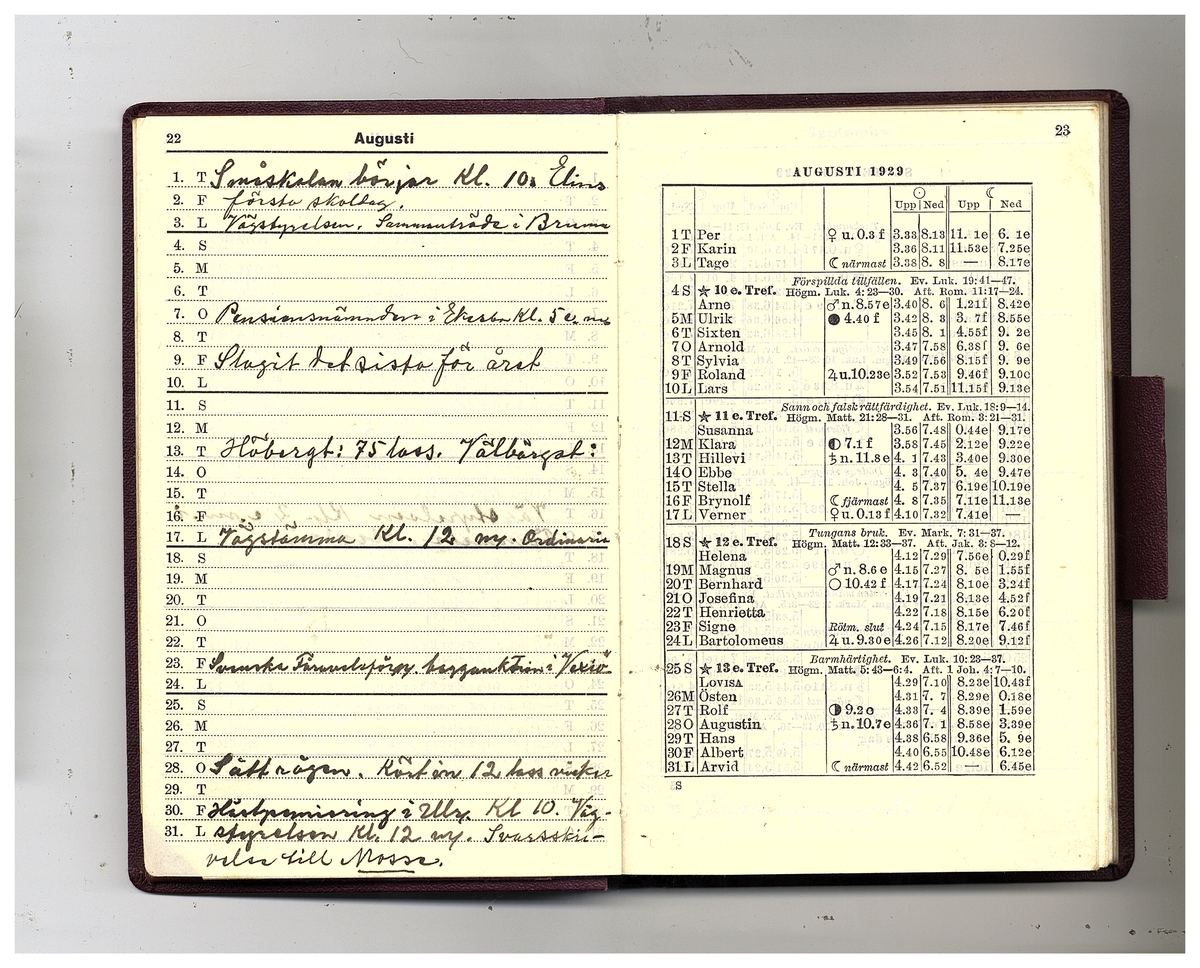 22 Augusti
1. T Småskolan börjar Kl. 10. Elins
2. F första skoldag.
3. L Vägstyrelsen. Sammanträde i
4. S
5. M
6. T
7. O Pensionsnämnden i Ekersbo Kl. 5 e.m
8. T
9. F Slagit det sista för året
10. L
11. S
12. M
13. T Höbergt: 75 lass. Välbärgat:
14. O
15. T
16. F
17. L Vägstämma Kl. 12 my. Ordinarie
18. S
19. M
20. T
21. O
22. T
23. F Svenska i Vexiö
24. L
25. S
26. M
27. T
28. O Sått rågen. Kört in 12 lass
29. T
30. F Hästpremiering i Kl 10. Väg-
31. L styrelsen Kl. 12 my. Svarsskri-
velse till Mosse.
23
AUGUSTI 1929
☉ ☾
Upp Ned Upp Ned
1 T Per ♀ u. 0.3 f 3.33 8.13 11. 1e 6. 1e
2 F Karin 3.36 8.11 11.53e 7.25e
3 L Tage ☾ närmast 3.38 8. 8 — 8.17e
Förspillda tillfällen. Ev. Luk. 19:41—47.
4 S ★ 10 e. Tref. Högm. Luk. 4:23—30. Aft. Rom. 11:17—24.
Arne ♂ n. 8.57 e 3.40 8. 6 1.21f 8.42e
5 M Ulrik ● 4.40 f 3.42 8. 3 3. 7f 8.55e
6 T Sixten 3.45 8. 1 4.55f 9. 2e
7 O Arnold 3.47 7.58 6.38f 9. 6e
8 T Sylvia 3.49 7.56 8.15f 9. 9e
9 F Roland ♃ u. 10.23e 3.52 7.53 9.46f 9.10e
10 L Lars 3.54 7.51 11.15f 9.13e
Sann och falsk rättfärdighet. Ev. Luk. 18:9—14.
11 S ★ 11 e. Tref. Högm. Matt. 21:28—31. Aft. Rom. 3:21—31.
Susanna 3.56 7.48 0.44e 9.17e
12 M Klara ◐ 7.1 f 3.58 7.45 2.12e 9.22e
13 T Hillevi ♄ n. 11.8 e 4. 1 7.43 3.40e 9.30e
14 O Ebbe 4. 3 7.40 5. 4e 9.47e
15 T Stella 4. 5 7.37 6.19e 10.19e
16 F Brynolf ☾ fjärmast 4. 8 7.35 7.11e 11.13e
17 L Verner ♀ u. 0.13 f 4.10 7.32 7.41e —
Tungans bruk. Ev. Mark. 7:31—37.
18 S ★ 12 e. Tref. Högm. Matt. 12:33—37. Aft. Jak. 3:8—12.
Helena 4.12 7.29 7.56e 0.29f
19 M Magnus ♂ n. 8.6 e 4.15 7.27 8. 5e 1.55f
20 T Bernhard ○ 10.42 f 4.17 7.24 8.10e 3.24f
21 O Josefina 4.19 7.21 8.13e 4.52f
22 T Henrietta 4.22 7.18 8.15e 6.20f
23 F Signe Rötm. slut 4.24 7.15 8.17e 7.46f
24 L Bartolomeus ♃ u. 9.30 e 4.26 7.12 8.20e 9.12f
Barmhärtighet. Ev. Luk. 10:23—37.
25 S ★ 13 e. Tref. Högm. Matt. 5:43—6:4. Aft. 1 Joh. 4:7—10.
LOVISA 4.29 7.10 8.23e 10.43f
26 M Östen 4.31 7. 7 8.29e 0.18e
27 T Rolf ◑ 9.2 e 4.33 7. 4 8.39e 1.59e
28 O Augustin ♄ n. 10.7 e 4.36 7. 1 8.58e 3.39e
29 T Hans 4.38 6.58 9.36e 5. 9e
30 F Albert 4.40 6.55 10.48e 6.12e
31 L Arvid ☾ närmast 4.42 6.52 — 6.45e